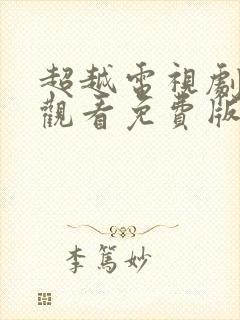 超越電視劇
觀看免費版
李篤妙